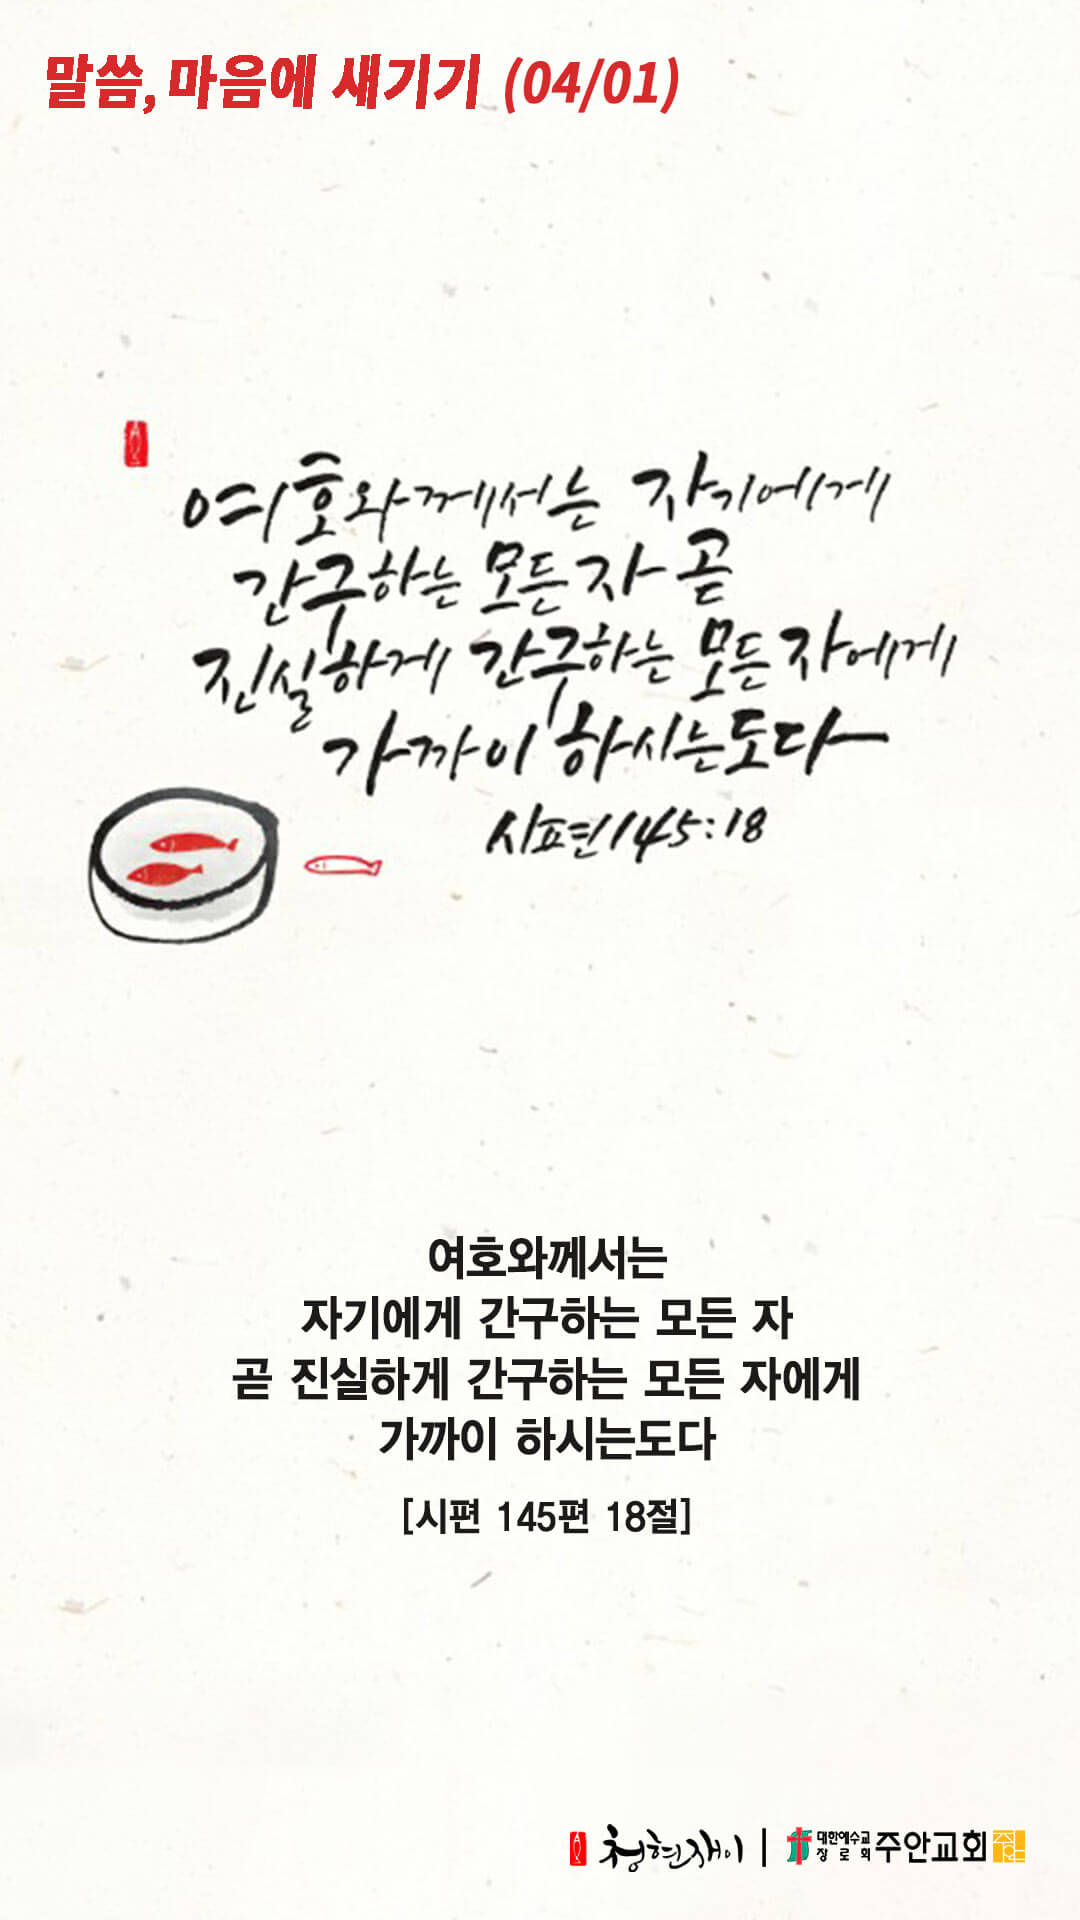 말씀, 마음에 새기기 (04/01)
여호와께서는 자기에게
간구하는 모든 자 곧
진실하게 간구하는 모든 자에게
가까이 하시는도다
시편 145:18
여호와께서는
자기에게 간구하는 모든 자
곧 진실하게 간구하는 모든 자에게
가까이 하시는도다
[시편 145편 18절]
청현재이 | 대한예수교 장로회 주안교회